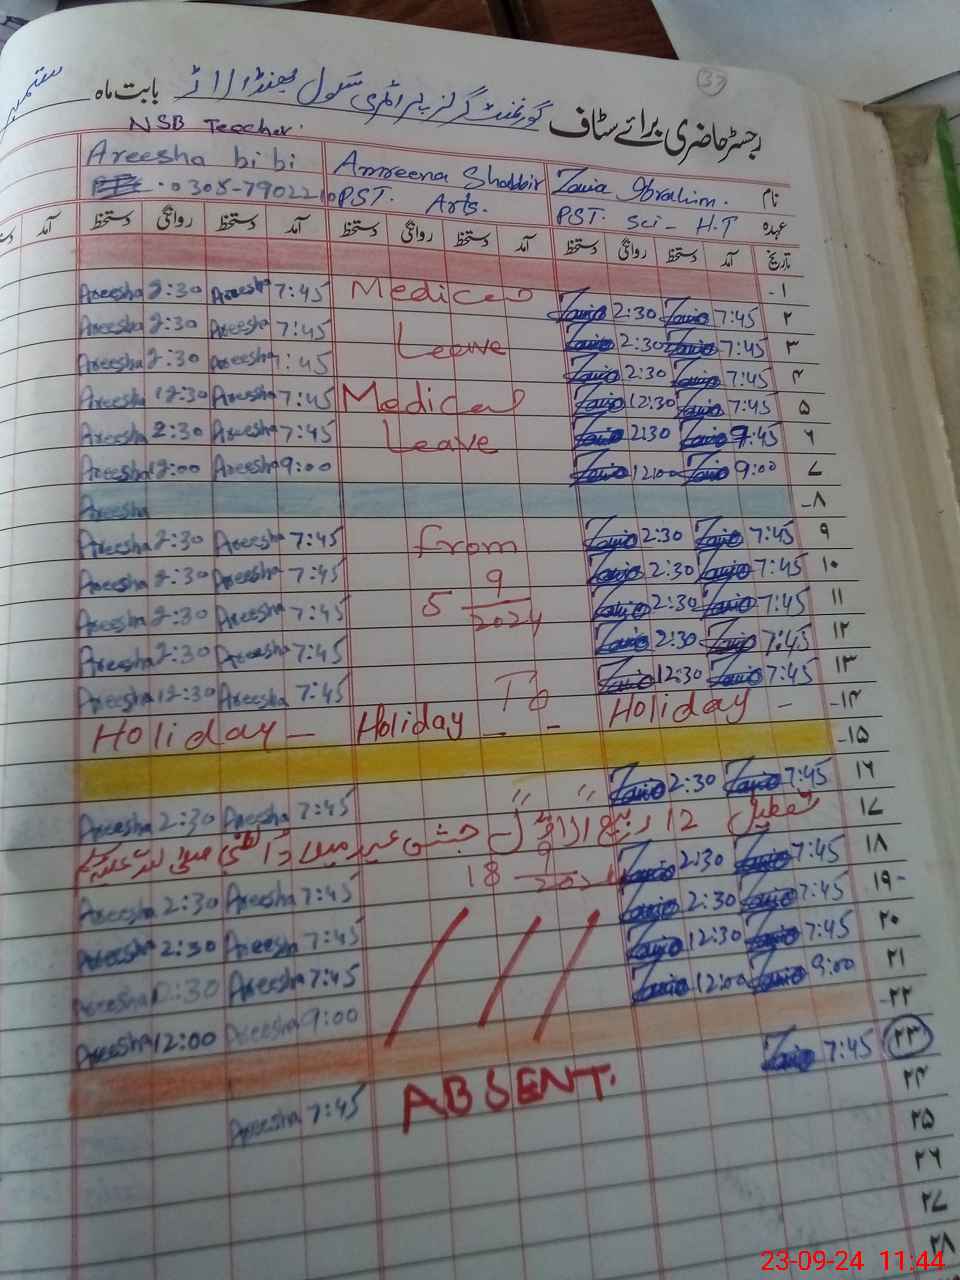 37
رجسٹر حاضری برائے سٹاف گورنمنٹ گرلز پرائمری سکول بابت ماہ ستمبر
NSB Teacher.
نام Zania Ibrahim. Amreena Shabbir Areesha bibi
عہدہ PST. Sci - H.T PST. Arts. 0305-7902210
تاریخ آمد دستخط روانگی دستخط آمد دستخط روانگی دستخط آمد دستخط روانگی دستخط آمد
۱-
Areesha 2:30 Areesha 7:45 Medical 2:30 7:45 ۲
Areesha 2:30 Areesha 7:45 Leave 2:30 7:45 ۳
Areesha 2:30 Areesha 7:45 2:30 7:45 ۴
Areesha 12:30 Areesha 7:45 Medical 12:30 7:45 ۵
Areesha 2:30 Areesha 7:45 Leave 2:30 7:45 ۶
Areesha 12:00 Areesha 9:00 12:00 9:00 ۷
Areesha ۸-
Areesha 2:30 Areesha 7:45 From 2:30 7:45 ۹
Areesha 2:30 Areesha 7:45 5 9/2024 2:30 7:45 ۱۰
Areesha 2:30 Areesha 7:45 2:30 7:45 ۱۱
Areesha 2:30 Areesha 7:45 2:30 7:45 ۱۲
Areesha 12:30 Areesha 7:45 To 12:30 7:45 ۱۳
Holiday - Holiday - - Holiday - ۱۴-
۱۵-
Areesha 2:30 Areesha 7:45 " " 2:30 7:45 ۱۶
تعطیل 12 ربیع الاول جشن عید میلاد النبی صلی اللہ علیہ وسلم ۱۷
Areesha 2:30 Areesha 7:45 18 9/2024 2:30 7:45 ۱۸
Areesha 2:30 Areesha 7:45 2:30 7:45 ۱۹-
Areesha 12:30 Areesha 7:45 12:30 7:45 ۲۰
Areesha 12:00 Areesha 9:00 12:00 9:00 ۲۱
۲۲-
Areesha 7:45 ABSENT. 7:45 ۲۳
۲۴
۲۵
۲۶
۲۷
۲۸
23-09-24 11:44